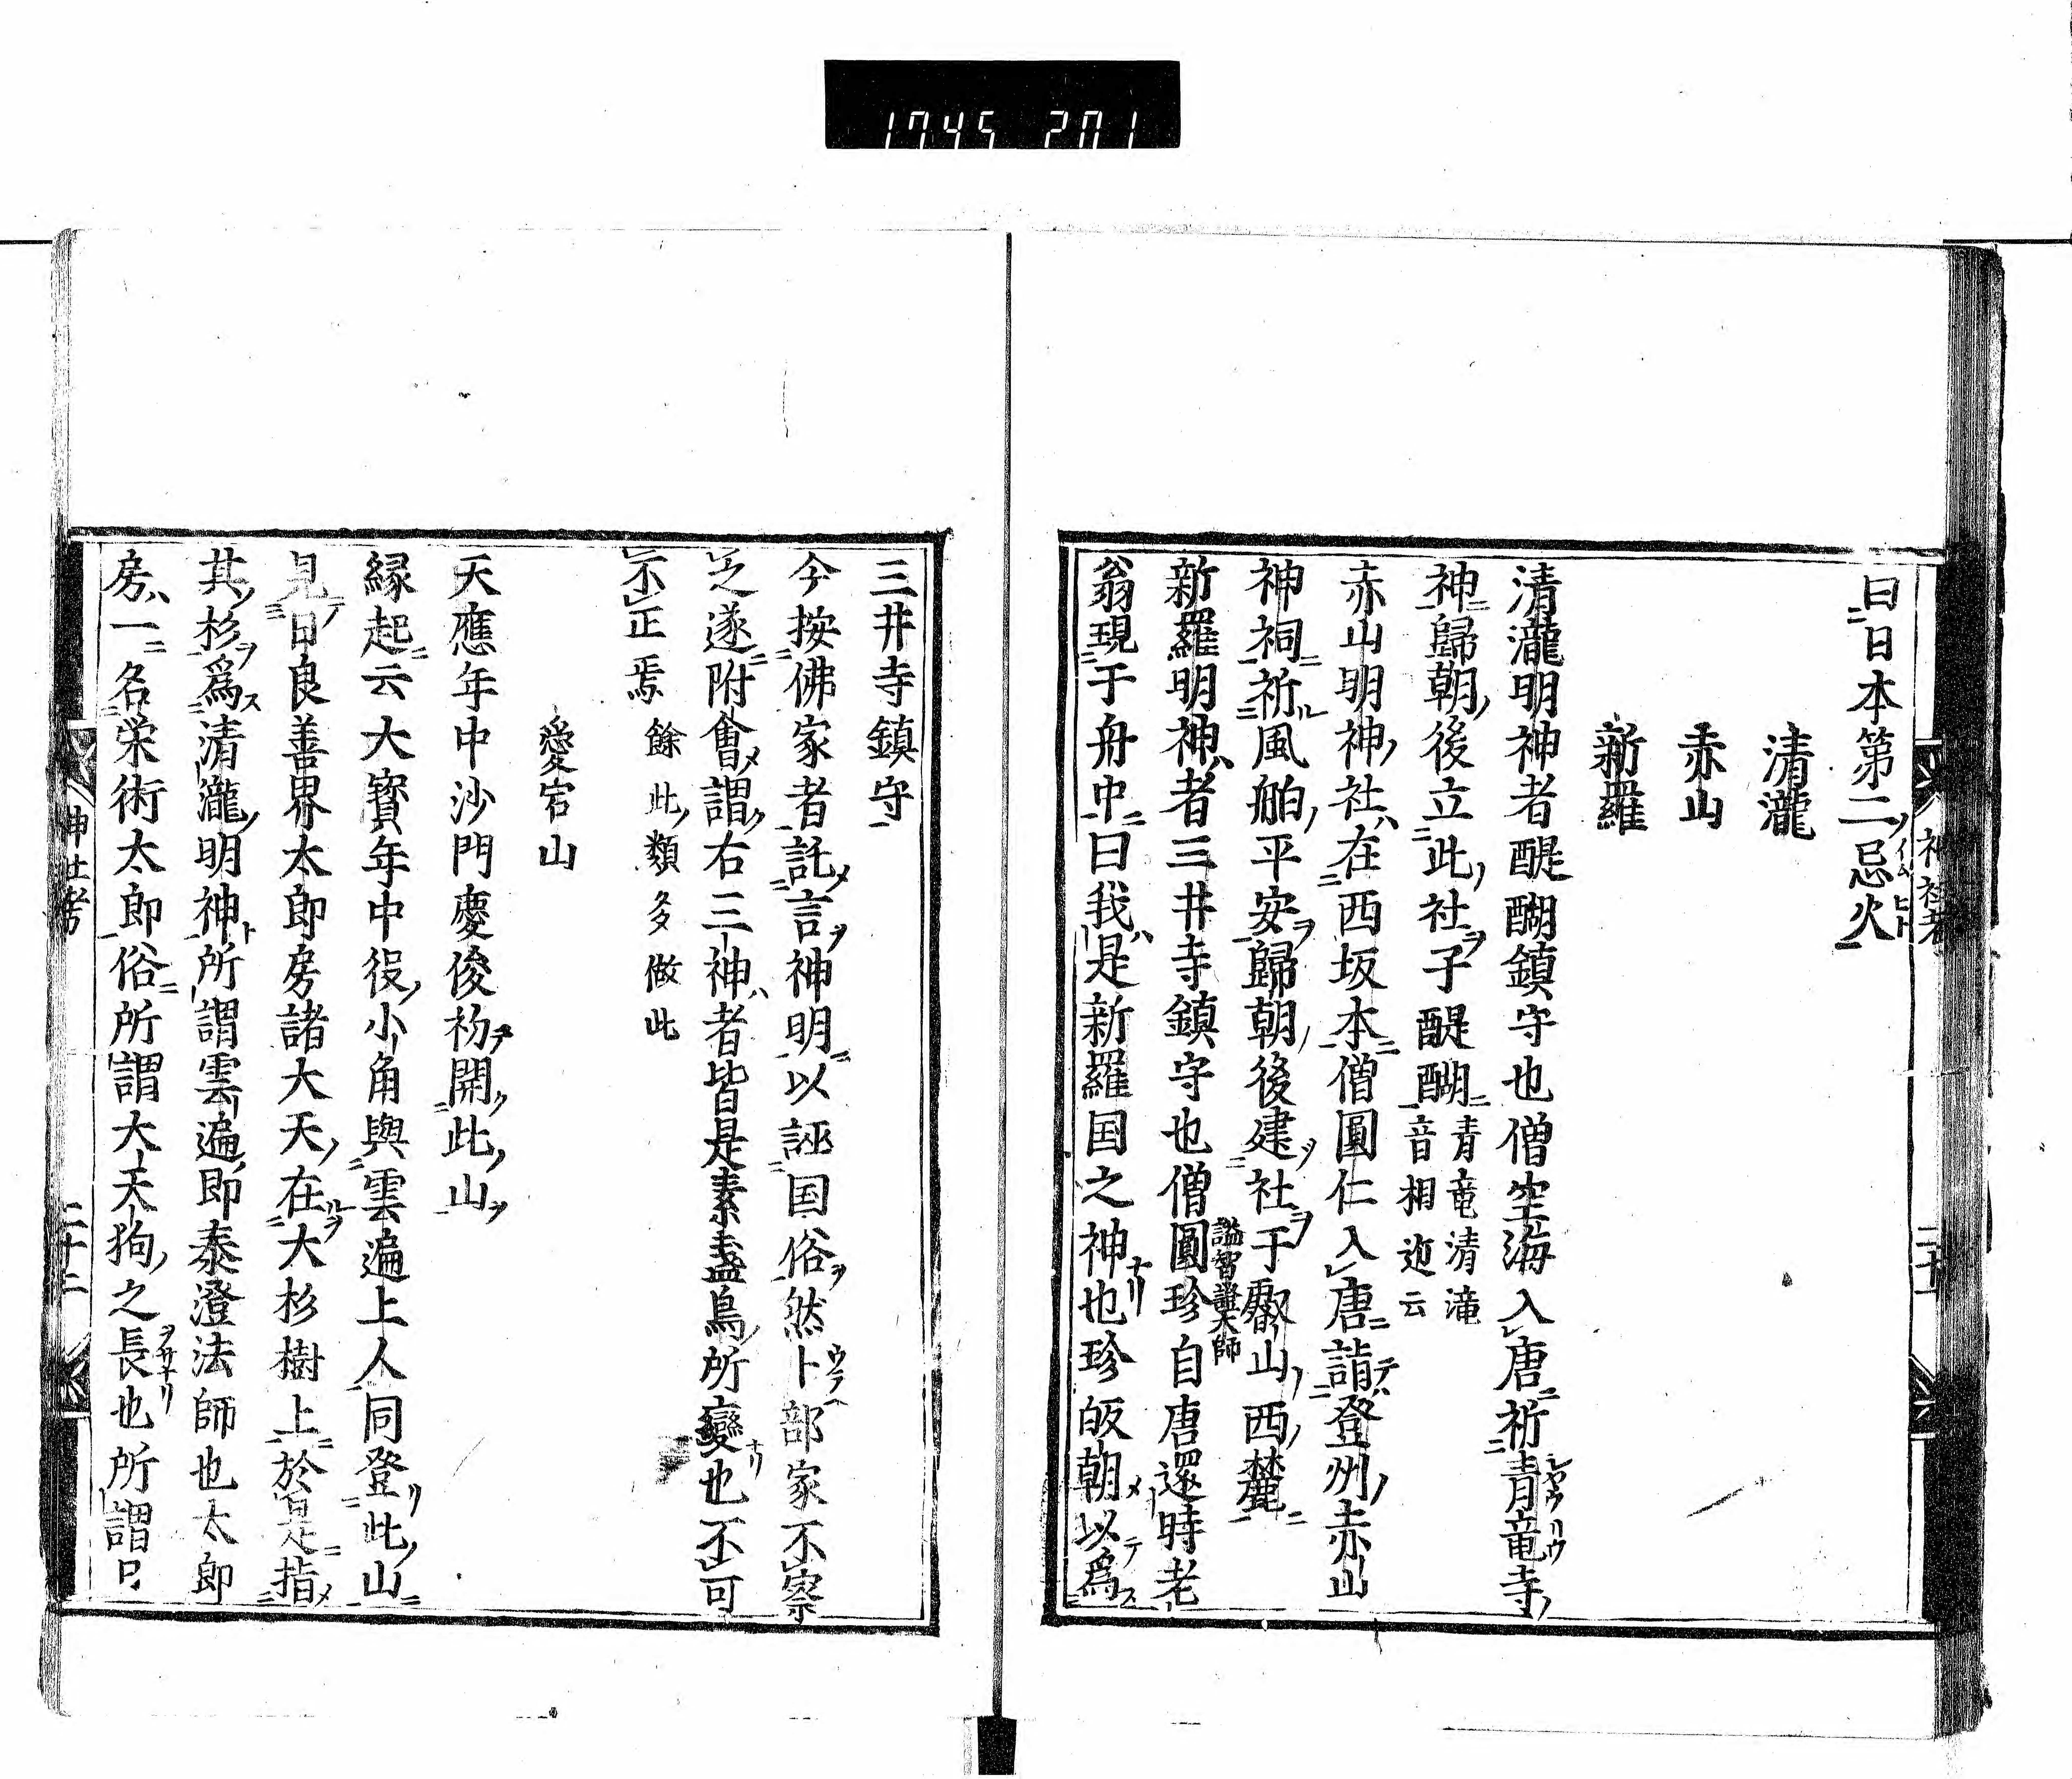 1745 201
曰日本第二忌火
清瀧
赤山
新羅
清瀧明神者醍醐鎮守也僧空海入唐祈青竜寺
神歸朝後立此社子醍醐青竜清滝音相近云
赤山明神社在西坂本僧圓仁入唐詣登州赤山
神祠祈風舶平安歸朝後建社于叡山西麓
新羅明神者三井寺鎮守也僧圓珍謚智證大師自唐還時老
翁現于舟中曰我是新羅国之神也珍皈朝以爲
三井寺鎮守
今按佛家者託言神明以誣国俗然卜部家不察
之遂附會謂右三神者皆是素盞烏所變也不可
不正焉餘此類多倣此
愛宕山
天應年中沙門慶俊初開此山
縁起云大寳年中役小角與雲遍上人同登此山
見日良善界太郎房諸大天在大杉樹上於是指
其杉爲清瀧明神所謂雲遍即泰澄法師也太郎
房一名栄術太郎俗所謂大天狗之長也所謂日
神社考
二十一
神社考
二十二